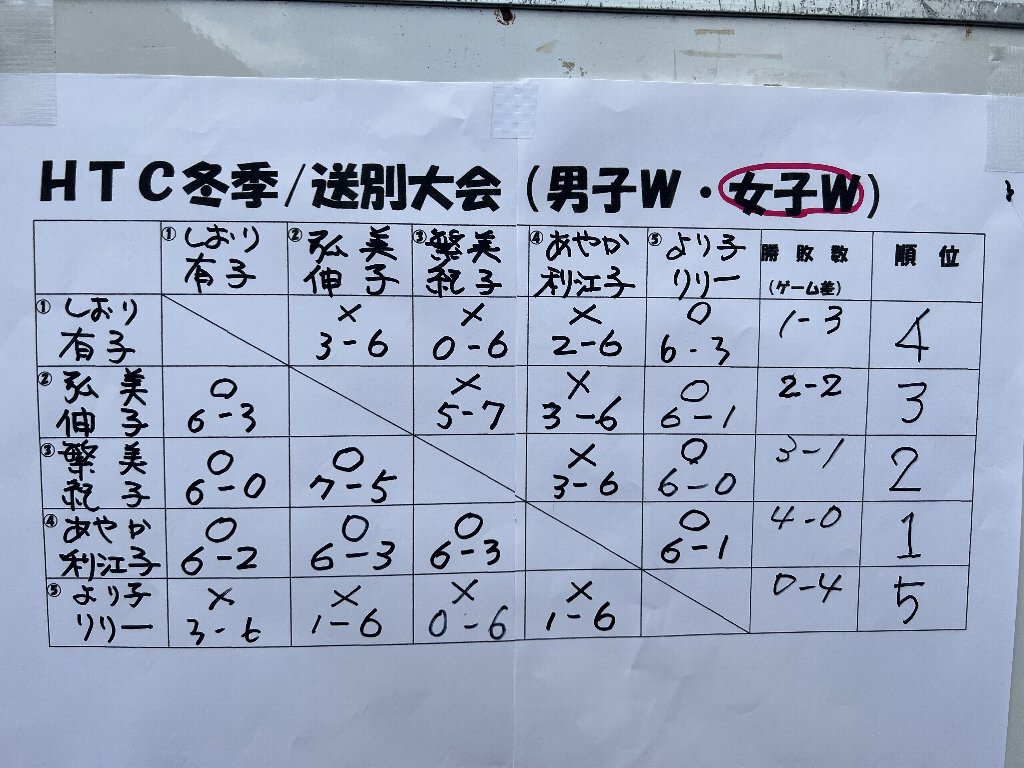 HTC冬季/送別大会(男子W・女子W)
①しおり ②弘美 ③繁美 ④あやか ⑤より子 勝敗数 順位
有子 伸子 紀子 利江子 リリー (ゲーム差)
①しおり × × × 〇 1-3 4
有子 3-6 0-6 2-6 6-3
②弘美 〇 × × 〇 2-2 3
伸子 6-3 5-7 3-6 6-1
③繁美 〇 〇 × 〇 3-1 2
紀子 6-0 7-5 3-6 6-0
④あやか 〇 〇 〇 〇 4-0 1
利江子 6-2 6-3 6-3 6-1
⑤より子 × × × × 0-4 5
リリー 3-6 1-6 0-6 1-6